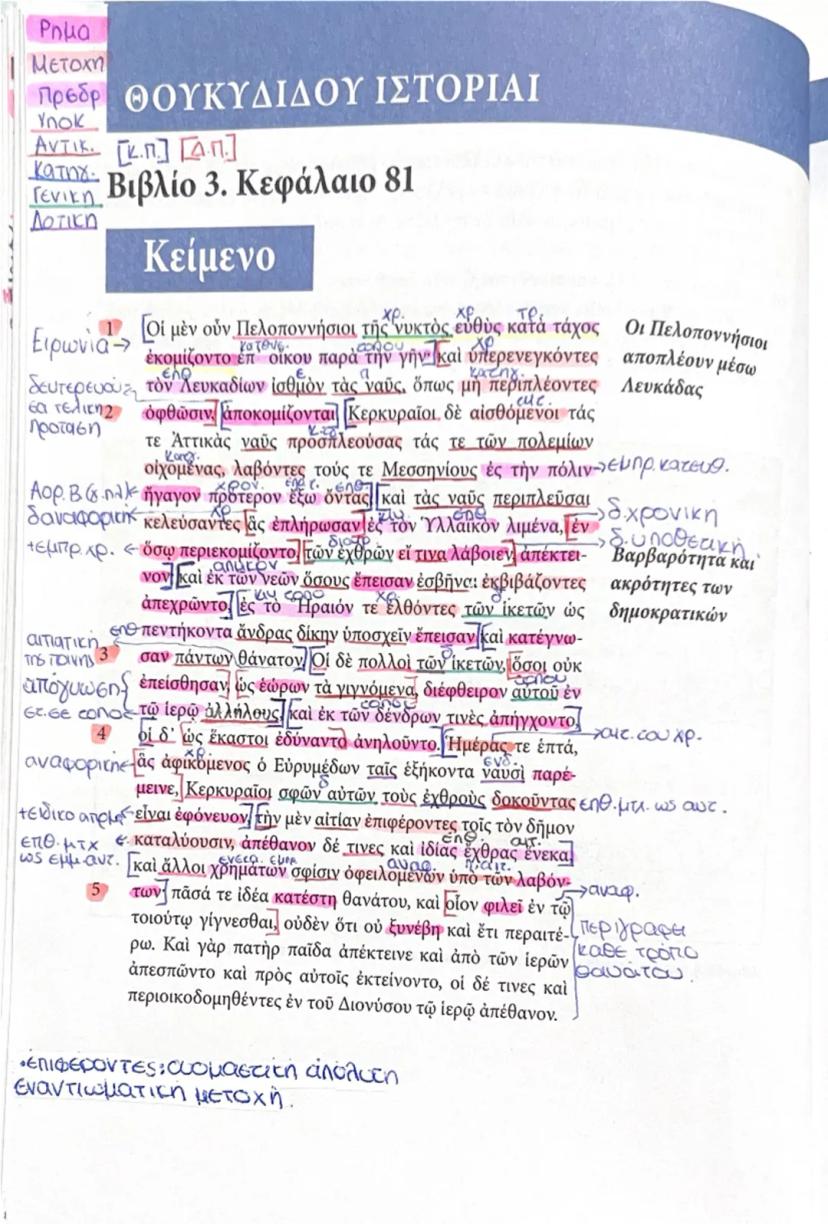 Ρημα
Μετοχη
Πρεδρ
Υποκ
Αντικ.
Κατηγ.
Γενικη
Δοτικη
ΘΟΥΚΥΔΙΔΟΥ ΙΣΤΟΡΙΑΙ
[Κ.Π.] [Δ.Π.]
Βιβλίο 3. Κεφάλαιο 81
Κείμενο
χρ. χρ. τρ.
1 [Οἱ μὲν οὖν Πελοποννήσιοι τῆς νυκτὸς εὐθὺς κατὰ τάχος
Ειρωνία →
ἐκομίζοντο ἐπ᾽ οἴκου παρὰ τὴν γῆν·] [καὶ ὑπερενεγκόντες
τὸν Λευκαδίων ἰσθμὸν τὰς ναῦς, ὅπως μὴ περιπλέοντες
Οι Πελοποννήσιοι
αποπλέουν μέσω
Λευκάδας
δευτερεύου
σα τελική
πρόταση
2 ὀφθῶσιν,] [ἀποκομίζονται.] [Κερκυραῖοι δὲ αἰσθόμενοι τάς
τε Ἀττικὰς ναῦς προσπλεούσας τάς τε τῶν πολεμίων
οἰχομένας, λαβόντες τούς τε Μεσσηνίους ἐς τὴν πόλιν
→ εμπρ. κατευθ.
ἤγαγον πρότερον ἔξω ὄντας,] [καὶ τὰς ναῦς περιπλεῦσαι
δ.αναφορική
κελεύσαντες [ἃς ἐπλήρωσαν] ἐς τὸν Ὑλλαϊκὸν λιμένα, [ἐν
→ δ. χρονική
+εμπρ. χρ. ←
ὅσῳ περιεκομίζοντο,] [τῶν ἐχθρῶν εἴ τινα λάβοιεν,] ἀπέκτει-
→ δ. υποθετική
νον·] [καὶ ἐκ τῶν νεῶν ὅσους ἔπεισαν ἐσβῆναι ἐκβιβάζοντες
ἀπεχρῶντο,] [ἐς τὸ Ἡραιόν τε ἐλθόντες τῶν ἱκετῶν ὡς
πεντήκοντα ἄνδρας δίκην ὑποσχεῖν ἔπεισαν] [καὶ κατέγνω-
Βαρβαρότητα και
ακρότητες των
δημοκρατικών
αιτιατική
της ποινης
3 σαν πάντων θάνατον.] [Οἱ δὲ πολλοὶ τῶν ἱκετῶν, [ὅσοι οὐκ
απόγνωση
ἐπείσθησαν, [ὡς ἑώρων τὰ γιγνόμενα, διέφθειρον αὐτοῦ ἐν
τῷ ἱερῷ ἀλλήλους,] [καὶ ἐκ τῶν δένδρων τινὲς ἀπήγχοντο,]
4 οἱ δ᾽ [ὡς ἕκαστοι ἐδύναντο] ἀνηλοῦντο. [Ἡμέρας τε ἑπτά,
αναφορική
[ἃς ἀφικόμενος ὁ Εὐρυμέδων ταῖς ἑξήκοντα ναυσὶ παρέ-
μεινε, Κερκυραῖοι σφῶν αὐτῶν τοὺς ἐχθροὺς δοκοῦντας
επθ. μτχ. ως αντ.
+ειδικο απρμφ ←
εἶναι ἐφόνευον,] [τὴν μὲν αἰτίαν ἐπιφέροντες τοῖς τὸν δῆμον
επθ. μτχ
ως εμμ. αντ.
καταλύουσιν, ἀπέθανον δέ τινες καὶ ἰδίας ἔχθρας ἕνεκα,
[καὶ ἄλλοι χρημάτων σφίσιν ὀφειλομένων ὑπὸ τῶν λαβόν-
5 των·] πᾶσά τε ἰδέα κατέστη θανάτου, καὶ [οἷον φιλεῖ ἐν τῷ
→ αναφ.
τοιούτῳ γίγνεσθαι,] οὐδὲν ὅτι οὐ ξυνέβη καὶ ἔτι περαιτέ-
ρω. Καὶ γὰρ πατὴρ παῖδα ἀπέκτεινε καὶ ἀπὸ τῶν ἱερῶν
ἀπεσπῶντο καὶ πρὸς αὐτοῖς ἐκτείνοντο, οἱ δέ τινες καὶ
περιοικοδομηθέντες ἐν τοῦ Διονύσου τῷ ἱερῷ ἀπέθανον.
περιγραφει
κάθε τρόπο
θανάτου.
•ἐπιφέροντες: ονομαστική απόλυτη
εναντιωματική μετοχή.